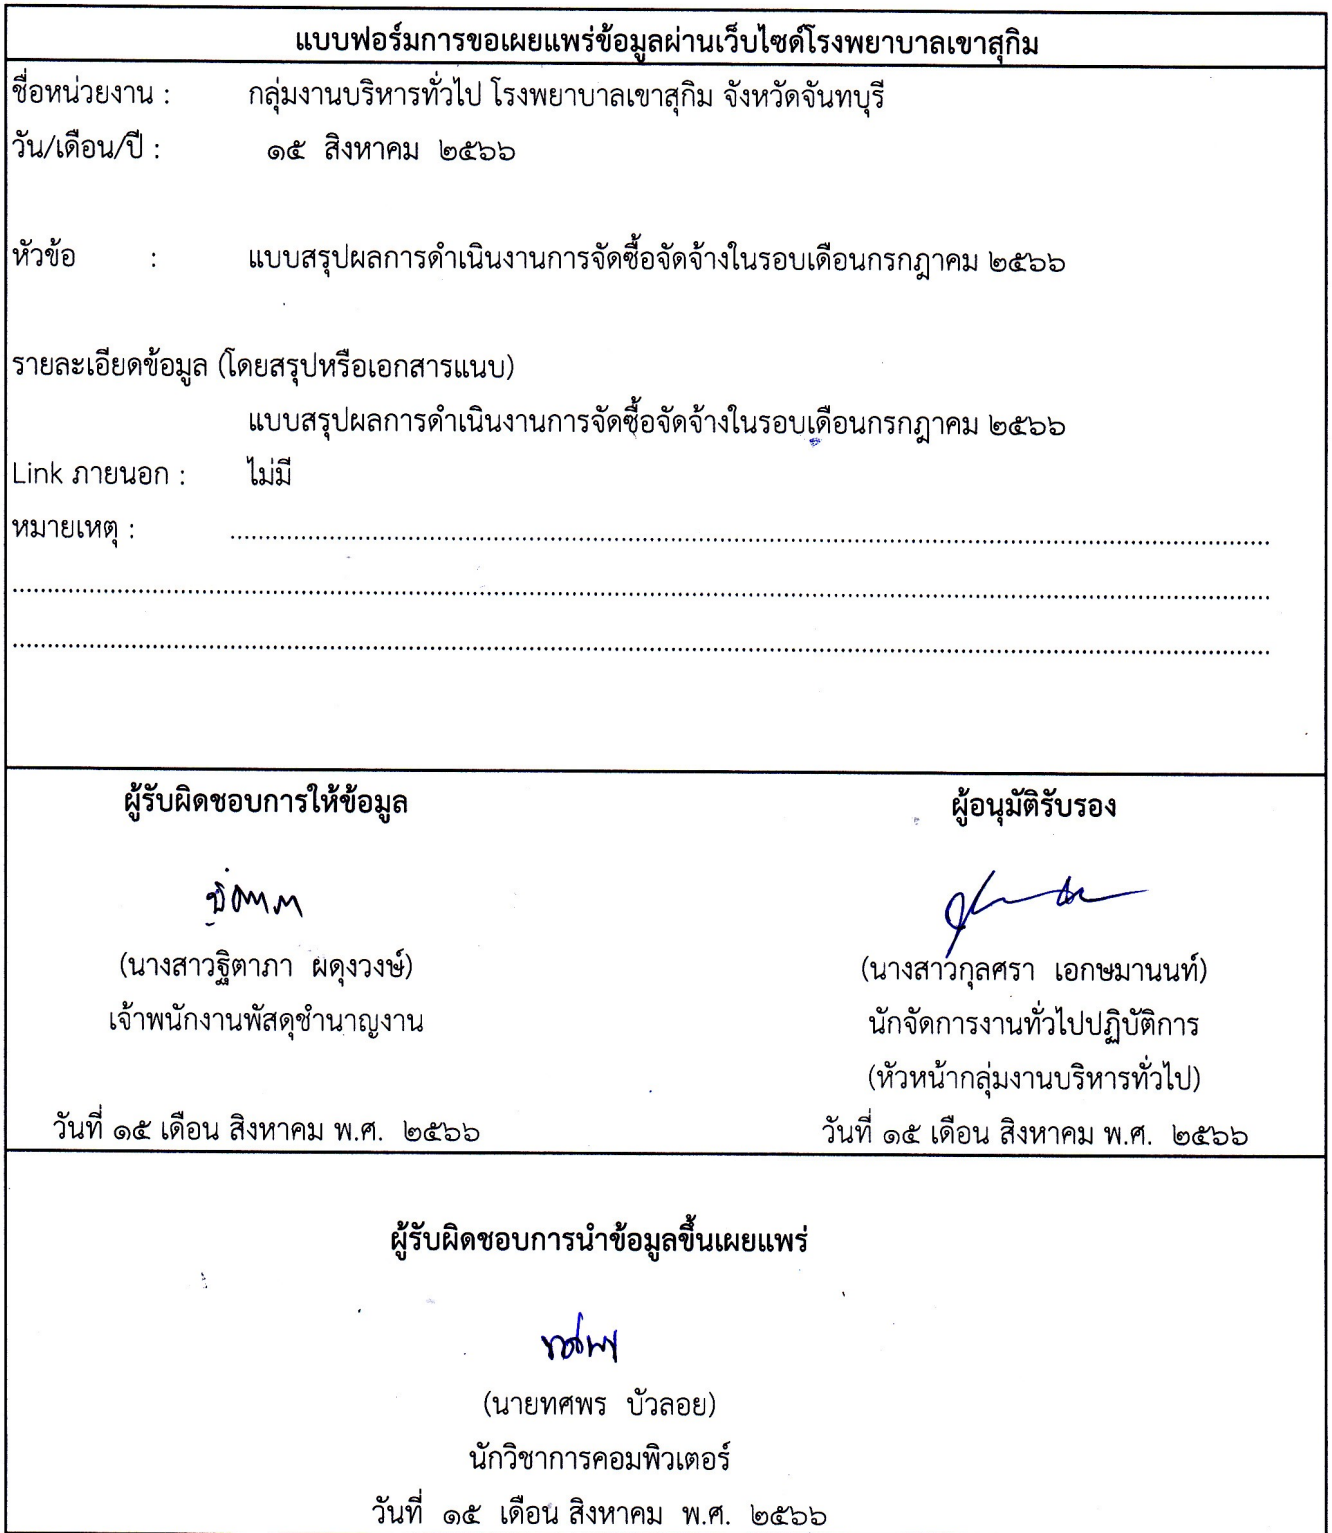 แบบฟอร์มการขอเผยแพร่ข้อมูลผ่านเว็บไซด์โรงพยาบาลเขาสุกิม
ชื่อหน่วยงาน : กลุ่มงานบริหารทั่วไป โรงพยาบาลเขาสุกิม จังหวัดจันทบุรี
วัน/เดือน/ปี : ๑๕ สิงหาคม ๒๕๖๖
หัวข้อ : แบบสรุปผลการดำเนินงานการจัดซื้อจัดจ้างในรอบเดือนกรกฎาคม ๒๕๖๖
รายละเอียดข้อมูล (โดยสรุปหรือเอกสารแนบ)
แบบสรุปผลการดำเนินงานการจัดซื้อจัดจ้างในรอบเดือนกรกฎาคม ๒๕๖๖
Link ภายนอก : ไม่มี
หมายเหตุ :
ผู้รับผิดชอบการให้ข้อมูล
(นางสาวฐิตาภา ผดุงวงษ์)
เจ้าพนักงานพัสดุชำนาญงาน
วันที่ ๑๕ เดือน สิงหาคม พ.ศ. ๒๕๖๖
ผู้อนุมัติรับรอง
(นางสาวกุลศรา เอกษมานนท์)
นักจัดการงานทั่วไปปฏิบัติการ
(หัวหน้ากลุ่มงานบริหารทั่วไป)
วันที่ ๑๕ เดือน สิงหาคม พ.ศ. ๒๕๖๖
ผู้รับผิดชอบการนำข้อมูลขึ้นเผยแพร่
(นายทศพร บัวลอย)
นักวิชาการคอมพิวเตอร์
วันที่ ๑๕ เดือน สิงหาคม พ.ศ. ๒๕๖๖